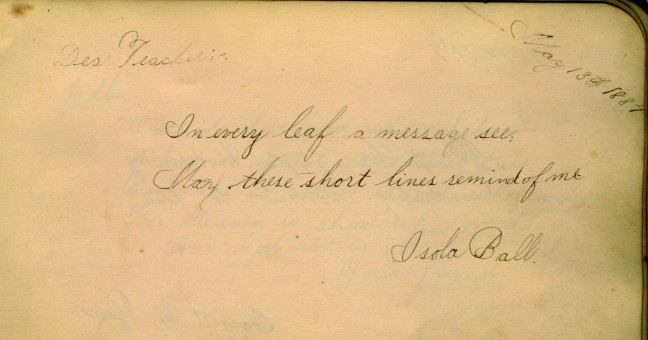 May 13th 1887
Dear Teacher:-
In every leaf a message see,
May these short lines remind of me
Isola Ball.